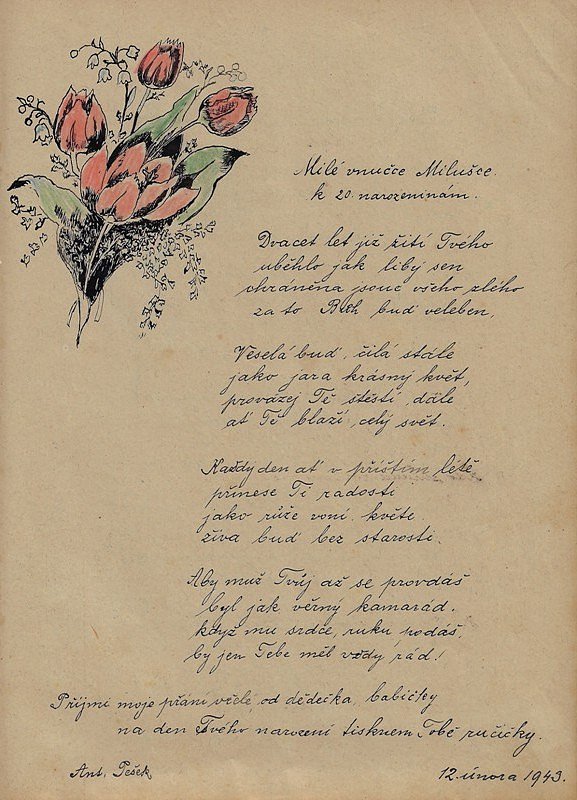 Milé vnučce Milušce
k 20. narozeninám.
Dvacet let již žití Tvého
uběhlo jak libý sen
chráněna jsouc všeho zlého
za to Bůh buď veleben,
Veselá buď, čilá stále
jako jara krásný květ,
provázej Tě štěstí dále
ať Tě blaží celý svět.
Každý den ať v příštím létě
přinese Ti radosti
jako růže voní květe
živa buď bez starosti.
Aby muž Tvůj až se provdáš
byl jak věrný kamarád.
když mu srdce, ruku podáš,
by jen Tebe měl vždy rád!
Přijmi moje přání vřelé od dědečka, babičky
na den Tvého narození tisknem Tobě ručičky.
Ant. Pešek
12. února 1943.